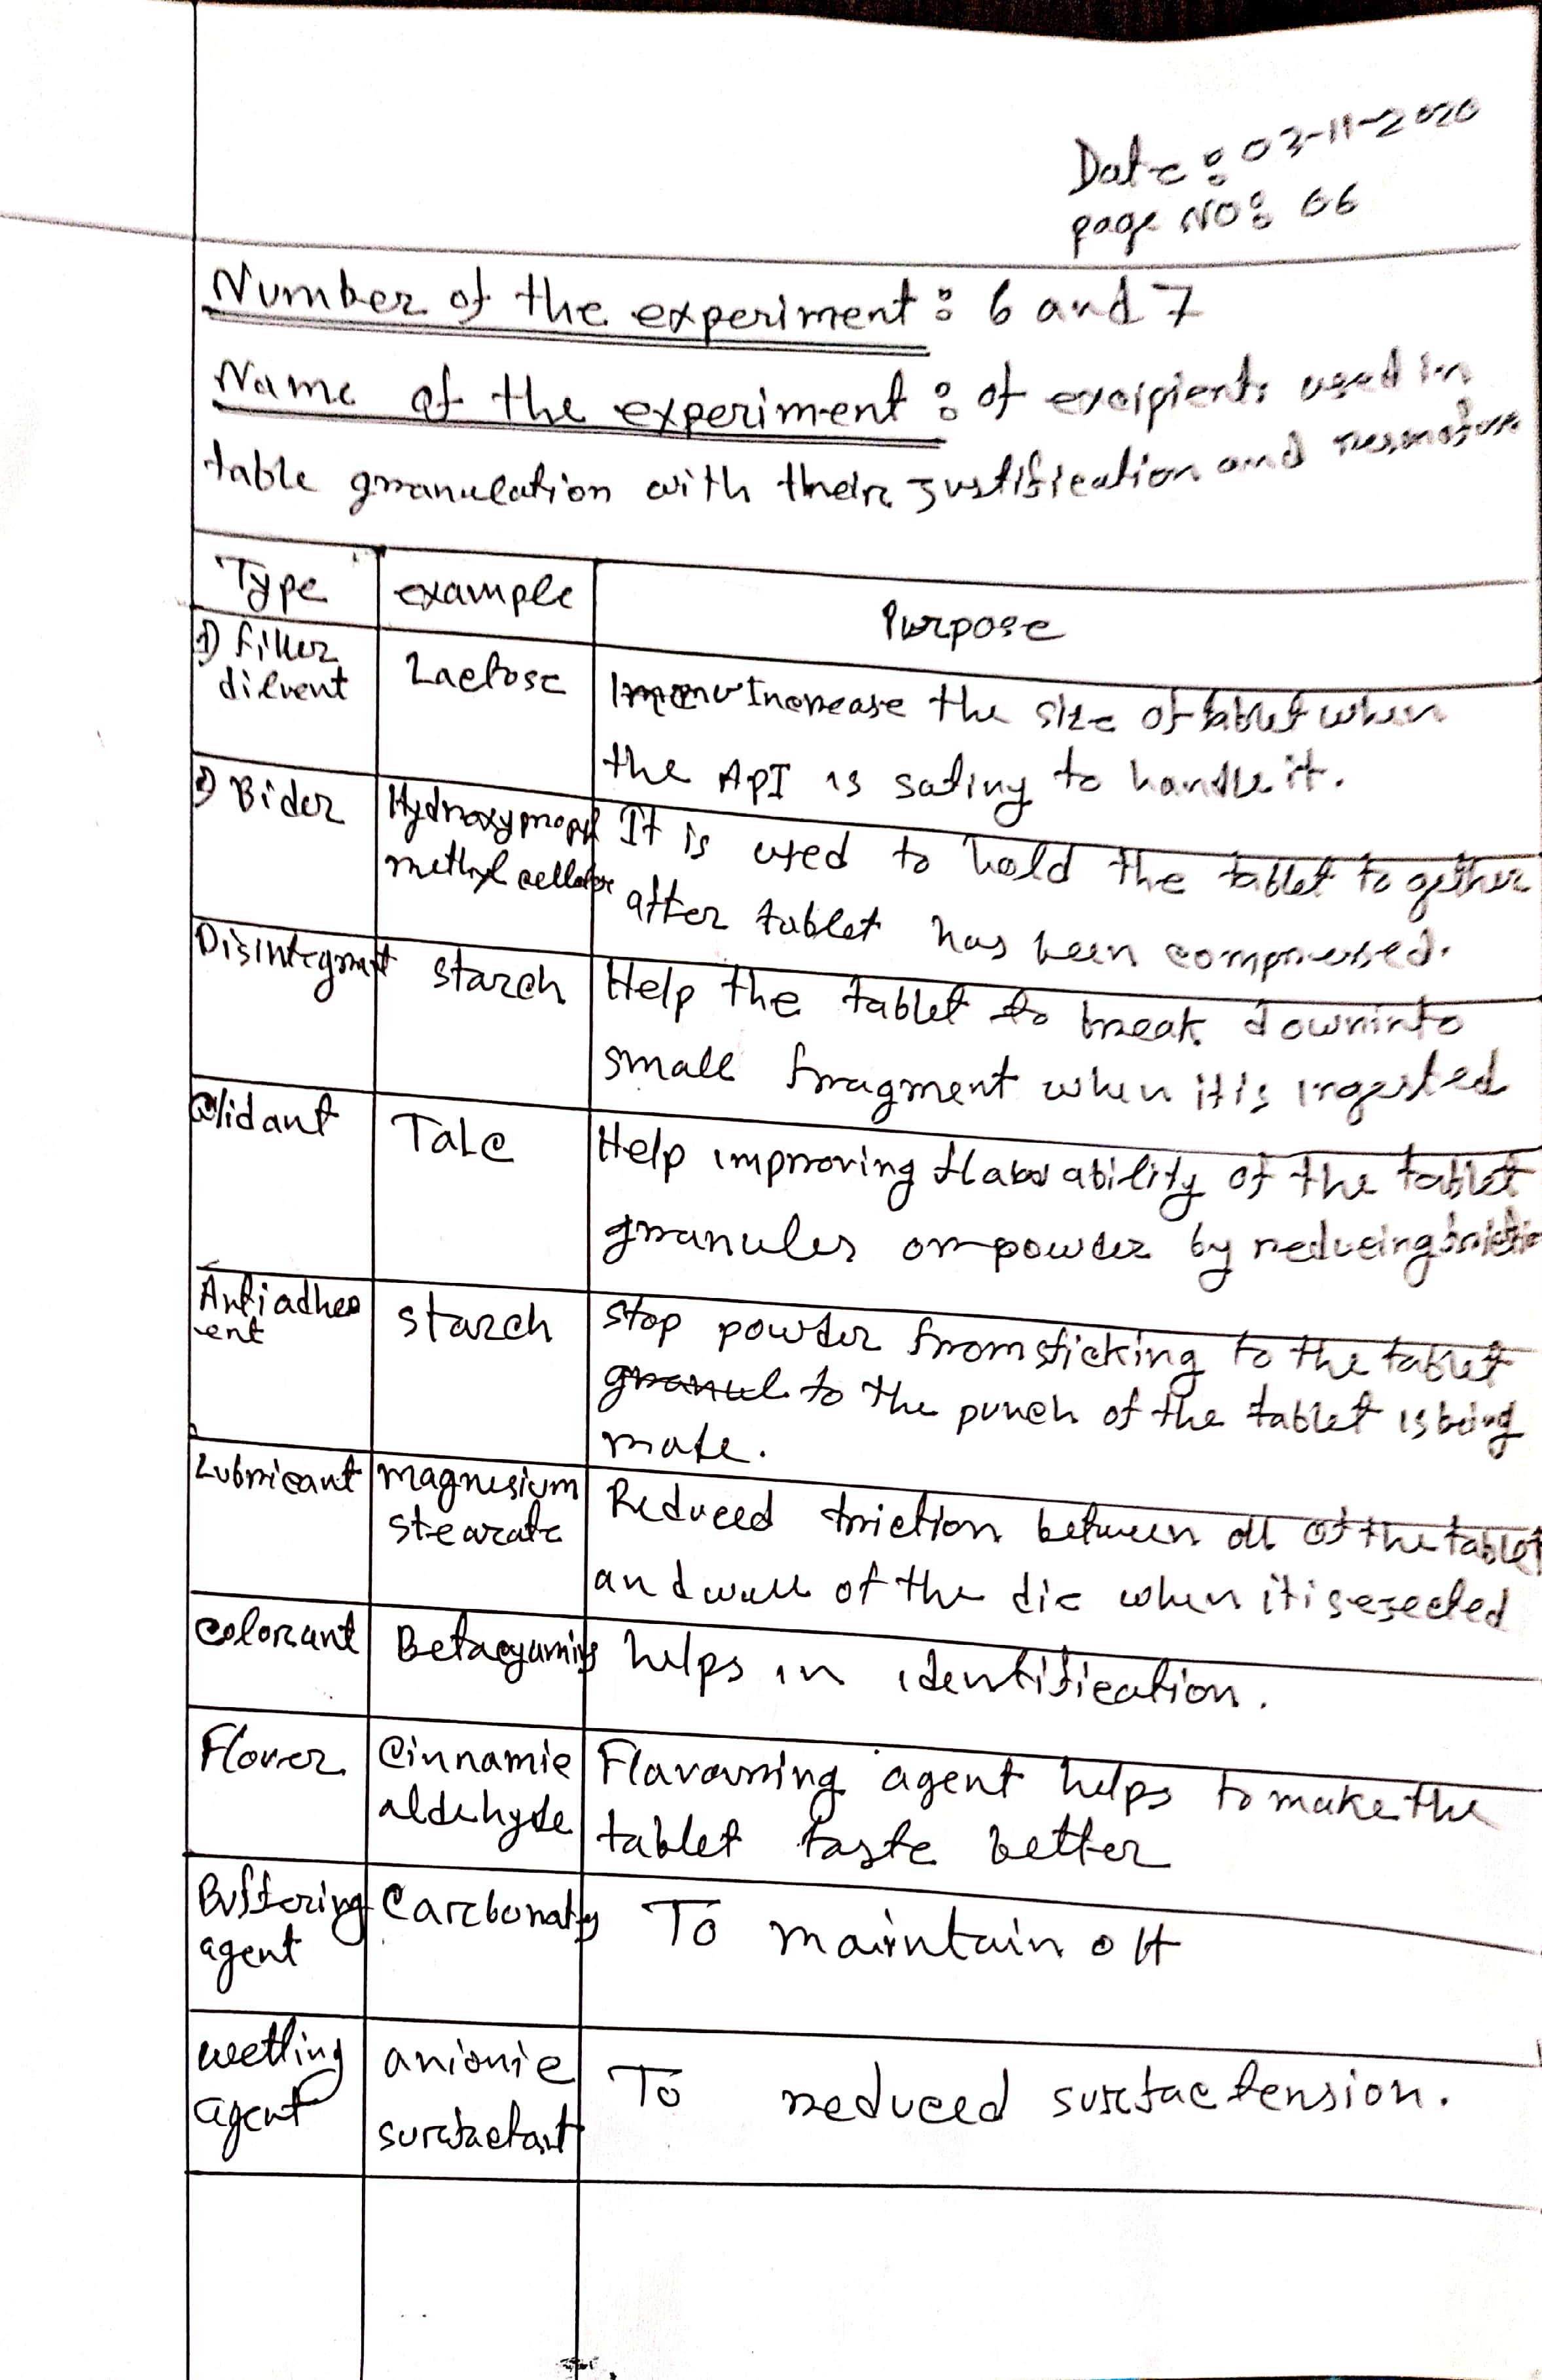 Date : 03-11-2020
page NO: 06
Number of the experiment : 6 and 7
Name of the experiment : of excipients used in
table granulation with their justification and
Type example Purpose
1) Filler
diluent
Lactose
Increase the size of tablet when
the API is to handle it.
2) Bider
Hydroxypropyl
methyl cellulose
It is used to hold the tablet together
after tablet has been compressed.
Disintegrant
starch
Help the tablet to break down into
small fragment when it is ingested
Glidant
Talc
Help improving ability of the tablet
granules or powder by reducing friction
Antiadher
ent
starch
stop powder from sticking to the tablet
granul to the punch of the tablet is being
made.
Lubricant
magnesium
stearate
Reduced friction between all of the tablet
and wall of the die when it is ejected
colorant
Betacyanins
helps in identification.
Flover
Cinnamic
aldehyde
Flavouring agent helps to make the
tablet taste better
Buffering
agent
Carbonates
To maintain
wetting
agent
anionic
surfactant
To reduced surfac tension.